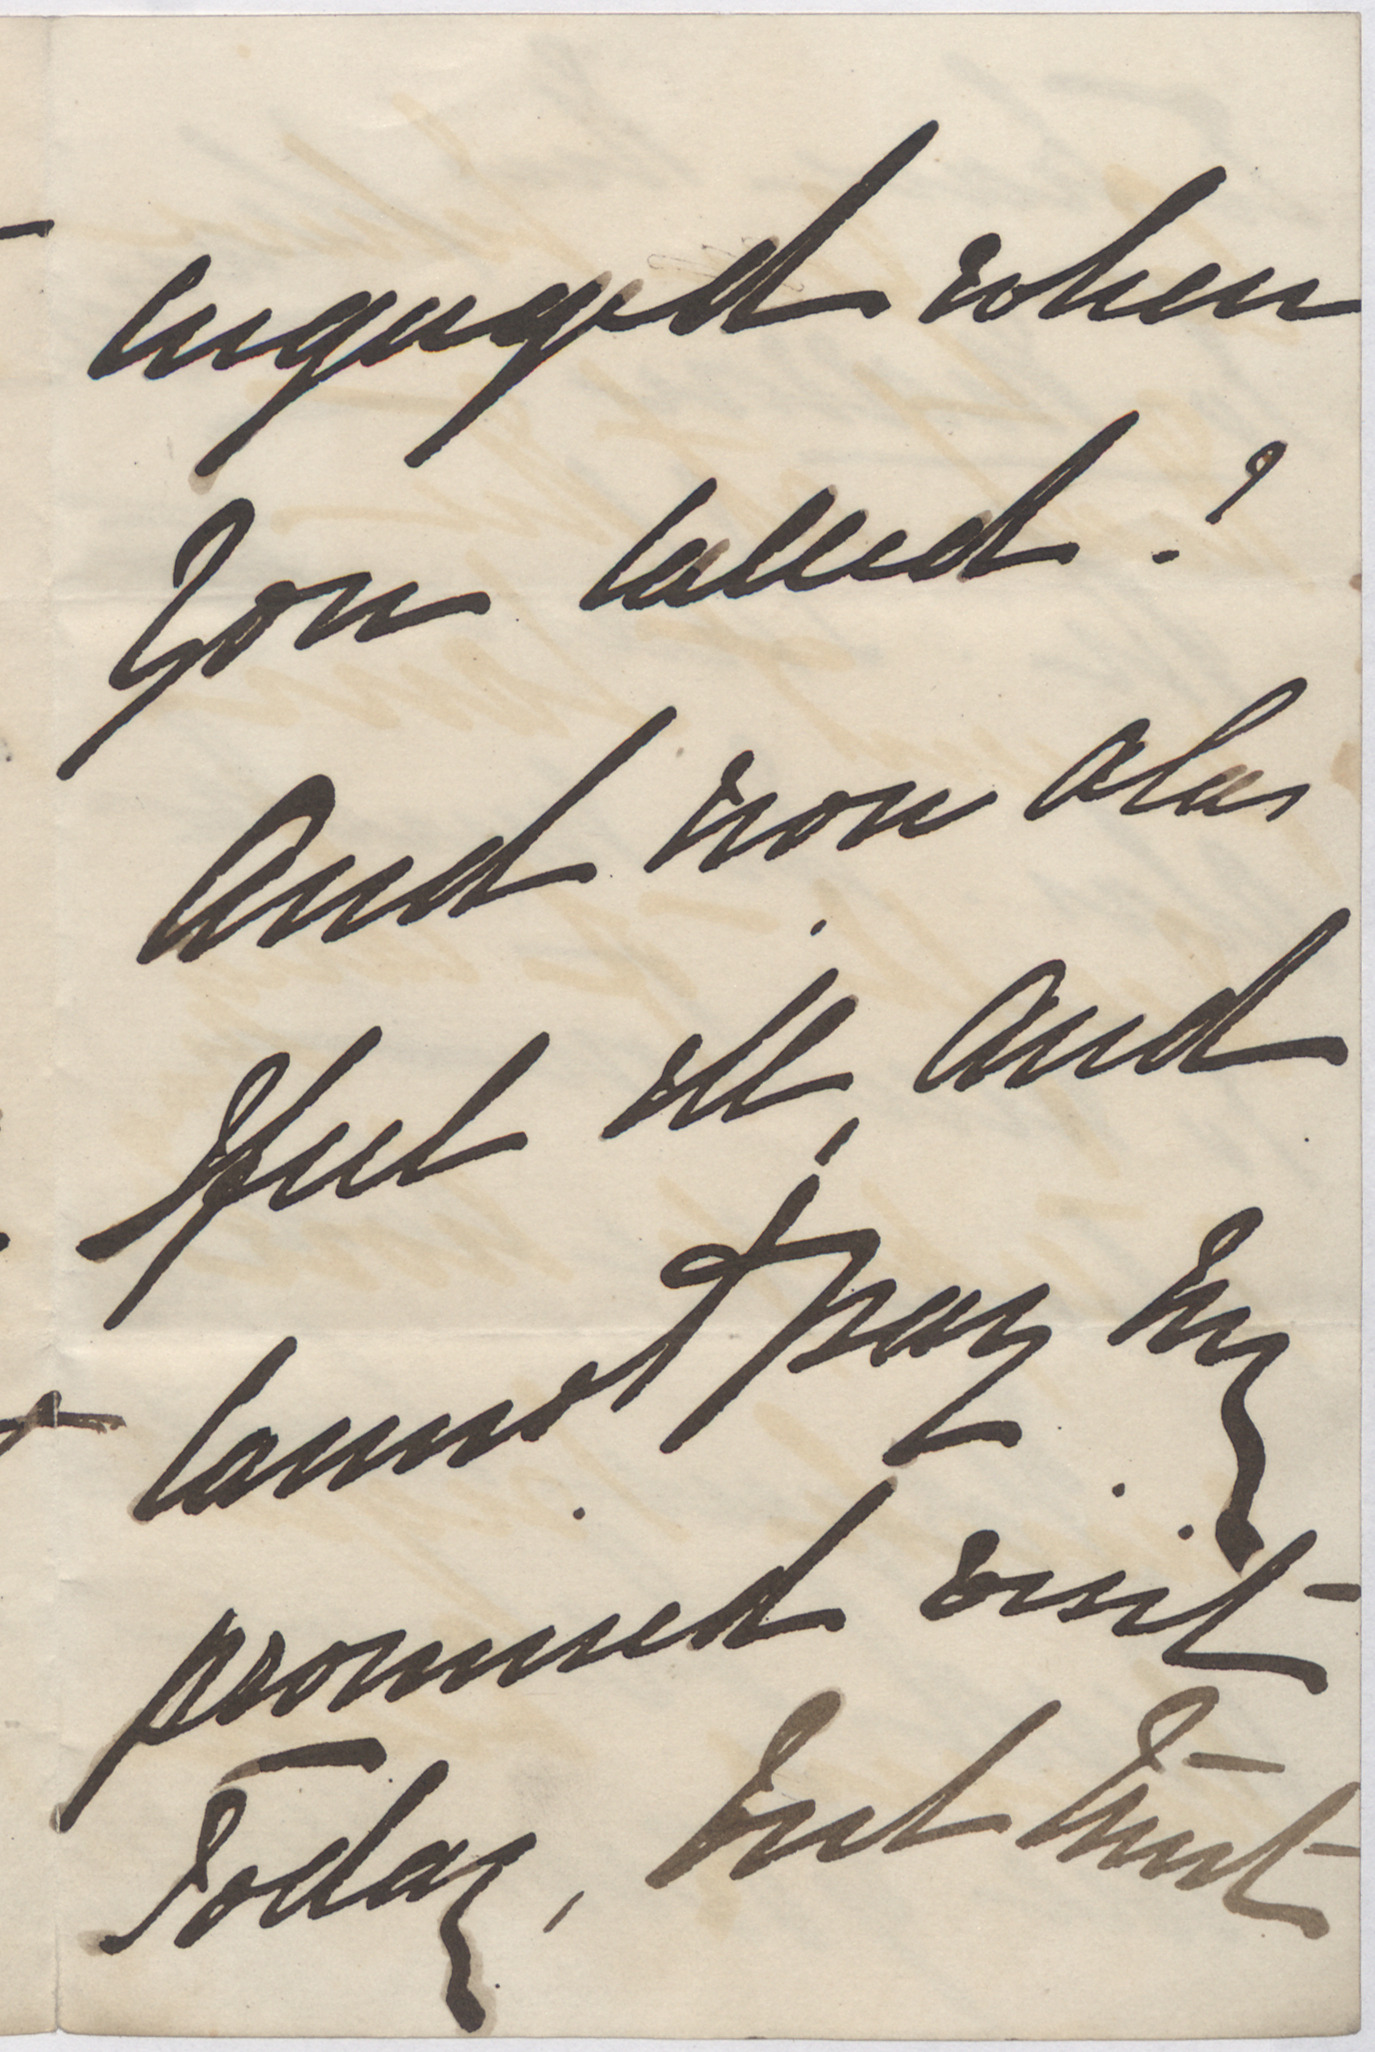 engaged when
you called?
And now alas
I feel ill, and
cannot pay my
promised visit
today, but trust